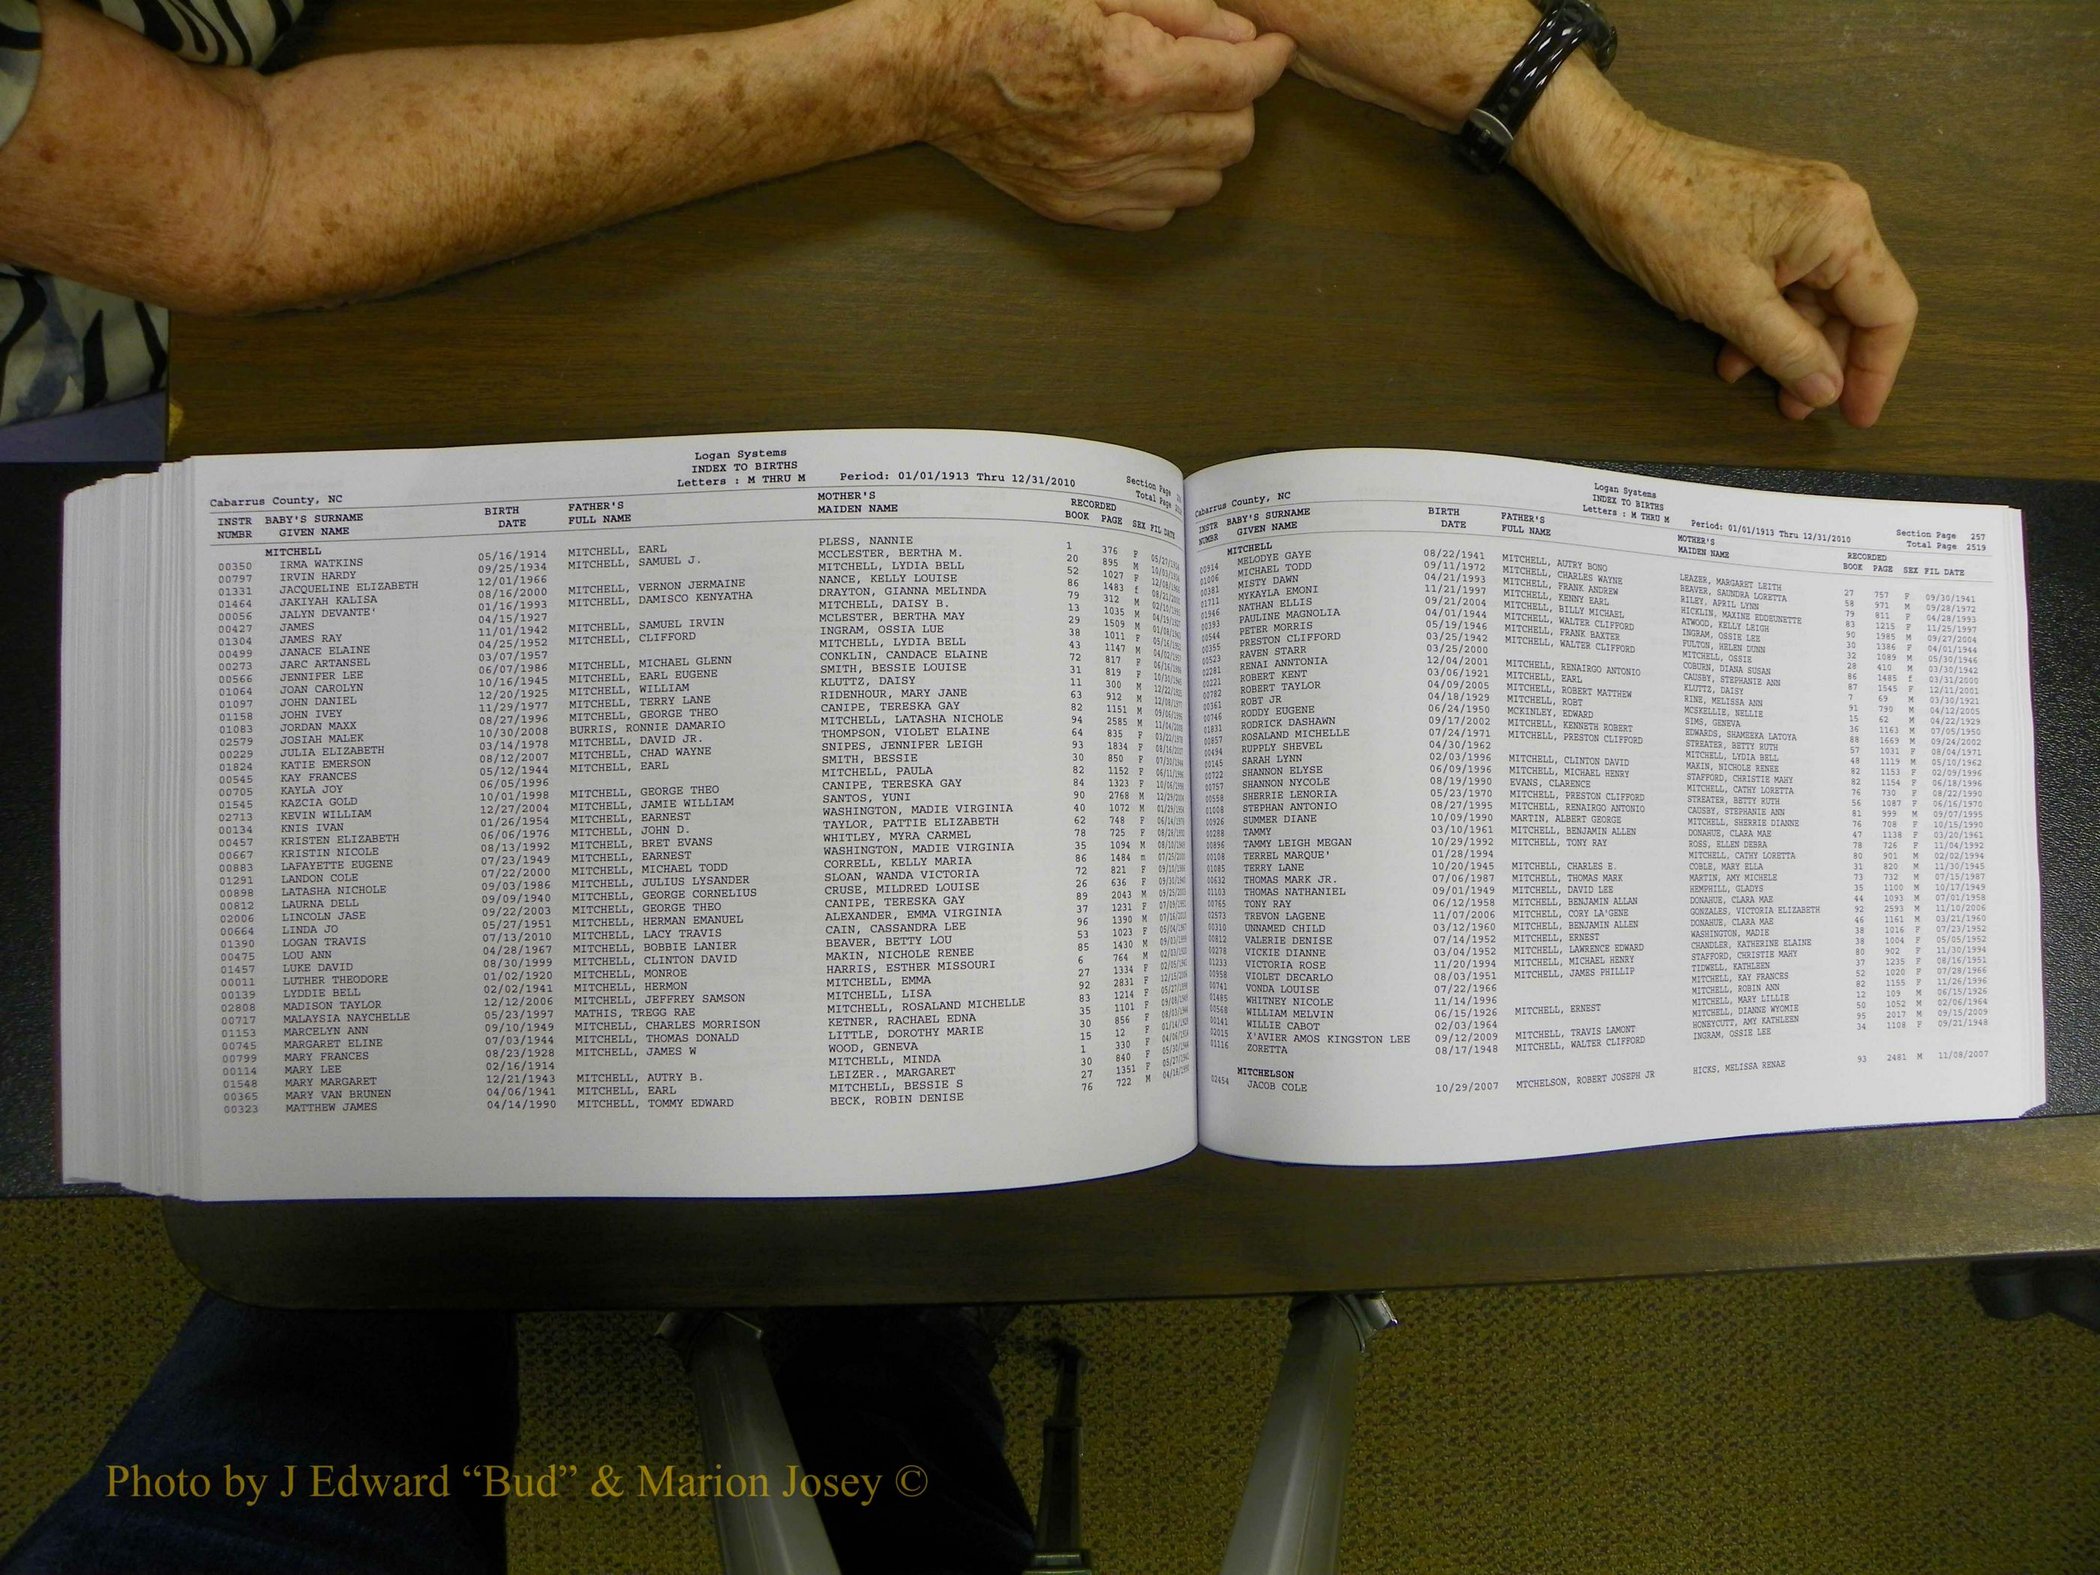 Logan Systems
INDEX TO BIRTHS
Cabarrus County, NC Letters : M THRU M Period: 01/01/1913 Thru 12/31/2010 Section Page
Total Page
INSTR BABY'S SURNAME BIRTH FATHER'S MOTHER'S RECORDED
NUMBR GIVEN NAME DATE FULL NAME MAIDEN NAME BOOK PAGE SEX FIL DATE
MITCHELL
00350 IRMA WATKINS 05/16/1914 MITCHELL, EARL PLESS, NANNIE 1 376 F 05/27/1914
00797 IRVIN HARDY 09/25/1934 MITCHELL, SAMUEL J. MCCLESTER, BERTHA M. 20 895 M
01331 JACQUELINE ELIZABETH 12/01/1966 MITCHELL, LYDIA BELL 52 1027 F
01464 JAKIYAH KALISA 08/16/2000 MITCHELL, VERNON JERMAINE NANCE, KELLY LOUISE 86 1483 f
00056 JALYN DEVANTE' 01/16/1993 MITCHELL, DAMISCO KENYATHA DRAYTON, GIANNA MELINDA 79 312 M
00427 JAMES 04/15/1927 MITCHELL, DAISY B. 13 1035 M
01304 JAMES RAY 11/01/1942 MITCHELL, SAMUEL IRVIN MCLESTER, BERTHA MAY 29 1509 M
00499 JANACE ELAINE 04/25/1952 MITCHELL, CLIFFORD INGRAM, OSSIA LUE 38 1011 F
00273 JARC ARTANSEL 03/07/1957 MITCHELL, LYDIA BELL 43 1147 M
00566 JENNIFER LEE 06/07/1986 MITCHELL, MICHAEL GLENN CONKLIN, CANDACE ELAINE 72 817 F
01064 JOAN CAROLYN 10/16/1945 MITCHELL, EARL EUGENE SMITH, BESSIE LOUISE 31 819 F
01097 JOHN DANIEL 12/20/1925 MITCHELL, WILLIAM KLUTTZ, DAISY 11 300 M
01158 JOHN IVEY 11/29/1977 MITCHELL, TERRY LANE RIDENHOUR, MARY JANE 63 912 M
01083 JORDAN MAXX 08/27/1996 MITCHELL, GEORGE THEO CANIPE, TERESKA GAY 82 1151 M
02579 JOSIAH MALEK 10/30/2008 BURRIS, RONNIE DAMARIO MITCHELL, LATASHA NICHOLE 94 2585 M
00229 JULIA ELIZABETH 03/14/1978 MITCHELL, DAVID JR. THOMPSON, VIOLET ELAINE 64 835 F
01824 KATIE EMERSON 08/12/2007 MITCHELL, CHAD WAYNE SNIPES, JENNIFER LEIGH 93 1834 F
00545 KAY FRANCES 05/12/1944 MITCHELL, EARL SMITH, BESSIE 30 850 F
00705 KAYLA JOY 06/05/1996 MITCHELL, PAULA 82 1152 F
01545 KAZCIA GOLD 10/01/1998 MITCHELL, GEORGE THEO CANIPE, TERESKA GAY 84 1323 F
02713 KEVIN WILLIAM 12/27/2004 MITCHELL, JAMIE WILLIAM SANTOS, YUNI 90 2768 M
00134 KNIS IVAN 01/26/1954 MITCHELL, EARNEST WASHINGTON, MADIE VIRGINIA 40 1072 M
00457 KRISTEN ELIZABETH 06/06/1976 MITCHELL, JOHN D. TAYLOR, PATTIE ELIZABETH 62 748 F
00667 KRISTIN NICOLE 08/13/1992 MITCHELL, BRET EVANS WHITLEY, MYRA CARMEL 78 725 F
00883 LAFAYETTE EUGENE 07/23/1949 MITCHELL, EARNEST WASHINGTON, MADIE VIRGINIA 35 1094 M
01291 LANDON COLE 07/22/2000 MITCHELL, MICHAEL TODD CORRELL, KELLY MARIA 86 1484 m
00898 LATASHA NICHOLE 09/03/1986 MITCHELL, JULIUS LYSANDER SLOAN, WANDA VICTORIA 72 821 F
00812 LAURNA DELL 09/09/1940 MITCHELL, GEORGE CORNELIUS CRUSE, MILDRED LOUISE 26 636 F
02006 LINCOLN JASE 09/22/2003 MITCHELL, GEORGE THEO CANIPE, TERESKA GAY 89 2043 M
00664 LINDA JO 05/27/1951 MITCHELL, HERMAN EMANUEL ALEXANDER, EMMA VIRGINIA 37 1231 F
01390 LOGAN TRAVIS 07/13/2010 MITCHELL, LACY TRAVIS CAIN, CASSANDRA LEE 96 1390 M
00475 LOU ANN 04/28/1967 MITCHELL, BOBBIE LANIER BEAVER, BETTY LOU 53 1023 F
01457 LUKE DAVID 08/30/1999 MITCHELL, CLINTON DAVID MAKIN, NICHOLE RENEE 85 1430 M
00011 LUTHER THEODORE 01/02/1920 MITCHELL, MONROE HARRIS, ESTHER MISSOURI 6 764 M
00139 LYDDIE BELL 02/02/1941 MITCHELL, HERMON MITCHELL, EMMA 27 1334 F
02808 MADISON TAYLOR 12/12/2006 MITCHELL, JEFFREY SAMSON MITCHELL, LISA 92 2831 F
00717 MALAYSIA NAYCHELLE 05/23/1997 MATHIS, TREGG RAE MITCHELL, ROSALAND MICHELLE 83 1214 F
01153 MARCELYN ANN 09/10/1949 MITCHELL, CHARLES MORRISON KETNER, RACHAEL EDNA 35 1101 F
00745 MARGARET ELINE 07/03/1944 MITCHELL, THOMAS DONALD LITTLE, DOROTHY MARIE 30 856 F
00799 MARY FRANCES 08/23/1928 MITCHELL, JAMES W WOOD, GENEVA 15 12 F
00114 MARY LEE 02/16/1914 MITCHELL, MINDA 1 330 F
01548 MARY MARGARET 12/21/1943 MITCHELL, AUTRY B. LEIZER., MARGARET 30 840 F
00365 MARY VAN BRUNEN 04/06/1941 MITCHELL, EARL MITCHELL, BESSIE S 27 1351 F
00323 MATTHEW JAMES 04/14/1990 MITCHELL, TOMMY EDWARD BECK, ROBIN DENISE 76 722 M
Logan Systems
INDEX TO BIRTHS
Cabarrus County, NC Letters : M THRU M Period: 01/01/1913 Thru 12/31/2010 Section Page 257
Total Page 2519
INSTR BABY'S SURNAME BIRTH FATHER'S MOTHER'S RECORDED
NUMBR GIVEN NAME DATE FULL NAME MAIDEN NAME BOOK PAGE SEX FIL DATE
MITCHELL
00914 MELODYE GAYE 08/22/1941 MITCHELL, AUTRY BONO LEAZER, MARGARET LEITH 27 757 F 09/30/1941
01006 MICHAEL TODD 09/11/1972 MITCHELL, CHARLES WAYNE BEAVER, SAUNDRA LORETTA 58 971 M 09/28/1972
00381 MISTY DAWN 04/21/1993 MITCHELL, FRANK ANDREW RILEY, APRIL LYNN 79 811 F 04/28/1993
01711 MYKAYLA EMONI 11/21/1997 MITCHELL, KENNY EARL HICKLIN, MAXINE EDDEUNETTE 83 1215 F 11/25/1997
01946 NATHAN ELLIS 09/21/2004 MITCHELL, BILLY MICHAEL ATWOOD, KELLY LEIGH 90 1985 M 09/27/2004
00393 PAULINE MAGNOLIA 04/01/1944 MITCHELL, WALTER CLIFFORD INGRAM, OSSIE LEE 30 1386 F 04/01/1944
00544 PETER MORRIS 05/19/1946 MITCHELL, FRANK BAXTER FULTON, HELEN DUNN 32 1089 M 05/30/1946
00355 PRESTON CLIFFORD 03/25/1942 MITCHELL, WALTER CLIFFORD MITCHELL, OSSIE 28 410 M 03/30/1942
00523 RAVEN STARR 03/25/2000 COBURN, DIANA SUSAN 86 1485 f 03/31/2000
02281 RENAI ANNTONIA 12/04/2001 MITCHELL, RENAIRGO ANTONIO CAUSBY, STEPHANIE ANN 87 1545 F 12/11/2001
00221 ROBERT KENT 03/06/1921 MITCHELL, EARL KLUTTZ, DAISY 7 69 M 03/30/1921
00782 ROBERT TAYLOR 04/09/2005 MITCHELL, ROBERT MATTHEW RINE, MELISSA ANN 91 790 M 04/12/2005
00361 ROBT JR 04/18/1929 MITCHELL, ROBT MCSKELLIE, NELLIE 15 62 M 04/22/1929
00746 RODDY EUGENE 06/24/1950 MCKINLEY, EDWARD SIMS, GENEVA 36 1163 M 07/05/1950
01831 RODRICK DASHAWN 09/17/2002 MITCHELL, KENNETH ROBERT EDWARDS, SHAMEEKA LATOYA 88 1669 M 09/24/2002
00857 ROSALAND MICHELLE 07/24/1971 MITCHELL, PRESTON CLIFFORD STREATER, BETTY RUTH 57 1031 F 08/04/1971
00494 RUPPLY SHEVEL 04/30/1962 MITCHELL, LYDIA BELL 48 1119 M 05/10/1962
00145 SARAH LYNN 02/03/1996 MITCHELL, CLINTON DAVID MAKIN, NICHOLE RENEE 82 1153 F 02/09/1996
00722 SHANNON ELYSE 06/09/1996 MITCHELL, MICHAEL HENRY STAFFORD, CHRISTIE MAHY 82 1154 F 06/18/1996
00757 SHANNON NYCOLE 08/19/1990 EVANS, CLARENCE MITCHELL, CATHY LORETTA 76 730 F 08/22/1990
00558 SHERRIE LENORIA 05/23/1970 MITCHELL, PRESTON CLIFFORD STREATER, BETTY RUTH 56 1087 F 06/16/1970
01008 STEPHAN ANTONIO 08/27/1995 MITCHELL, RENAIRGO ANTONIO CAUSBY, STEPHANIE ANN 81 999 M 09/07/1995
00926 SUMMER DIANE 10/09/1990 MARTIN, ALBERT GEORGE MITCHELL, SHERRIE DIANNE 76 708 F 10/15/1990
00288 TAMMY 03/10/1961 MITCHELL, BENJAMIN ALLEN DONAHUE, CLARA MAE 47 1138 F 03/20/1961
00896 TAMMY LEIGH MEGAN 10/29/1992 MITCHELL, TONY RAY ROSS, ELLEN DEBRA 78 726 F 11/04/1992
00108 TERREL MARQUE' 01/28/1994 MITCHELL, CATHY LORETTA 80 901 M 02/02/1994
01085 TERRY LANE 10/20/1945 MITCHELL, CHARLES E. COBLE, MARY ELLA 31 820 M 11/30/1945
00632 THOMAS MARK JR. 07/06/1987 MITCHELL, THOMAS MARK MARTIN, AMY MICHELE 73 732 M 07/15/1987
01103 THOMAS NATHANIEL 09/01/1949 MITCHELL, DAVID LEE HEMPHILL, GLADYS 35 1100 M 10/17/1949
00765 TONY RAY 06/12/1958 MITCHELL, BENJAMIN ALLAN DONAHUE, CLARA MAE 44 1093 M 07/01/1958
02573 TREVON LAGENE 11/07/2006 MITCHELL, CORY LA'GENE GONZALES, VICTORIA ELIZABETH 92 2593 M 11/10/2006
00310 UNNAMED CHILD 03/12/1960 MITCHELL, BENJAMIN ALLEN DONAHUE, CLARA MAE 46 1161 M 03/21/1960
00812 VALERIE DENISE 07/14/1952 MITCHELL, ERNEST WASHINGTON, MADIE 38 1016 F 07/23/1952
00278 VICKIE DIANNE 03/04/1952 MITCHELL, LAWRENCE EDWARD CHANDLER, KATHERINE ELAINE 38 1004 F 05/05/1952
01233 VICTORIA ROSE 11/20/1994 MITCHELL, MICHAEL HENRY STAFFORD, CHRISTIE MAHY 80 902 F 11/30/1994
00958 VIOLET DECARLO 08/03/1951 MITCHELL, JAMES PHILLIP TIDWELL, KATHLEEN 37 1235 F 08/16/1951
00741 VONDA LOUISE 07/22/1966 MITCHELL, KAY FRANCES 52 1020 F 07/28/1966
01485 WHITNEY NICOLE 11/14/1996 MITCHELL, ROBIN ANN 82 1155 F 11/26/1996
00568 WILLIAM MELVIN 06/15/1926 MITCHELL, ERNEST MITCHELL, MARY LILLIE 12 109 M 06/15/1926
00141 WILLIE CABOT 02/03/1964 MITCHELL, DIANNE WYOMIE 50 1052 M 02/06/1964
02015 X'AVIER AMOS KINGSTON LEE 09/12/2009 MITCHELL, TRAVIS LAMONT HONEYCUTT, AMY KATHLEEN 95 2017 M 09/15/2009
01116 ZORETTA 08/17/1948 MITCHELL, WALTER CLIFFORD INGRAM, OSSIE LEE 34 1108 F 09/21/1948
MITCHELSON
02454 JACOB COLE 10/29/2007 MTCHELSON, ROBERT JOSEPH JR HICKS, MELISSA RENAE 93 2481 M 11/08/2007
Photo by J Edward “Bud” & Marion Josey ©